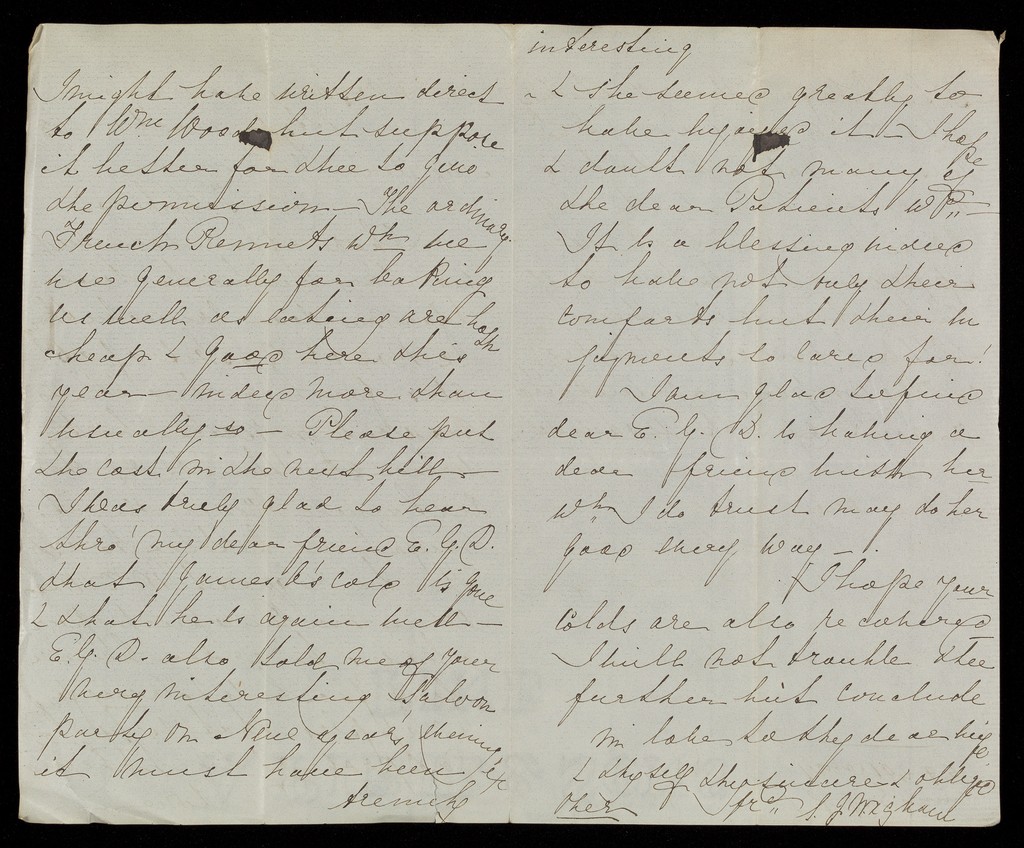 I might have written direct
to Wm Wood but suppose
it better for thee to give
the permission — The ordinary
French Rennets wh we
use generally for baking
as well as eating are both
cheap & good here this
year — indeed more than
usually so — Please put
the cost in the next bill —
I was truly glad to hear
thro' my dear friend E. G. D.
that James 's cold is gone
& that he is again well —
E. G. D. also told me of your
very interesting Saloon
party on New year's evening
it must have been
interesting
& she seemed greatly to
have enjoyed it — I hope
& doubt not many of
the dear Patients
It is a blessing indeed
to have not only their
comforts but their en
joyments so cared for!
I am glad to find
dear E. G. D. is having a
dear friend with her
wh I do trust may do her
good every way —.
I hope your
colds are also recovered
I will not trouble thee
further but conclude
in love to thy dear wife
& thyself thy sincere & obliged
frd S. J. Wigham